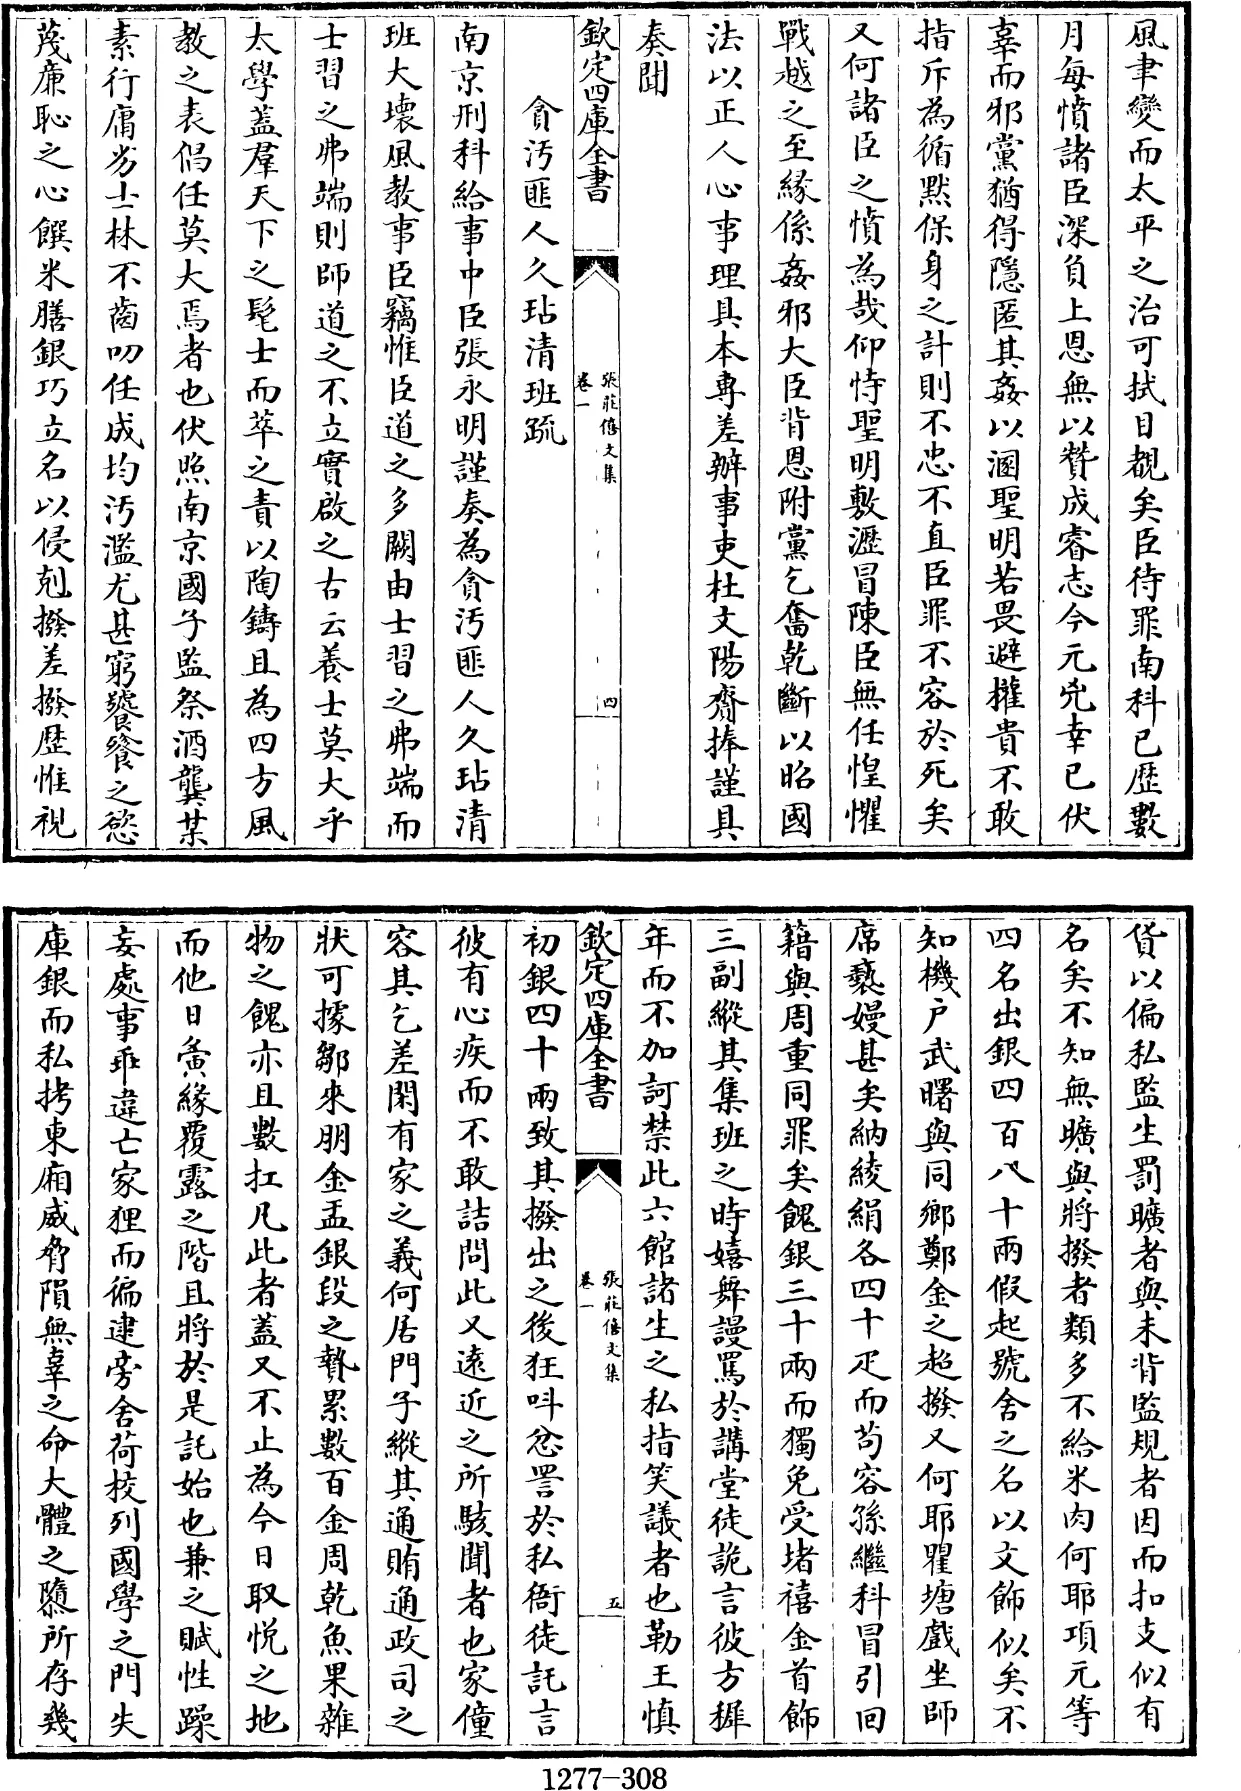 風聿變而太平之治可拭目覩矣臣待罪南科已歷數
月每憤諸臣深負上恩無以贊成睿志今元兇幸已伏
辜而邪黨猶得隱匿其姦以溷聖明若畏避權貴不敢
指斥為循黙保身之計則不忠不直臣罪不容於死矣
又何諸臣之憤為哉仰恃聖明敷瀝冒陳臣無任惶懼
戰越之至緣係姦邪大臣背恩附黨乞奮乾斷以昭國
法以正人心事理具本專差辦事吏杜文陽齎捧謹具
奏聞
欽定四庫全書
張莊僖文集
卷一
四
貪污匪人久玷清班疏
南京刑科給事中臣張永明謹奏為貪污匪人久玷清
班大壞風教事臣竊惟臣道之多闕由士習之弗端而
士習之弗端則師道之不立實啟之古云養士莫大乎
太學蓋羣天下之髦士而萃之責以陶鑄且為四方風
教之表倡任莫大焉者也伏照南京國子監祭酒龔某
素行庸劣士林不齒叨任成均污濫尤甚窮饕餮之慾
蔑廉恥之心饌米膳銀巧立名以侵剋撥差撥歷惟視
貨以偏私監生罰曠者與未背監規者因而扣支似有
名矣不知無曠與將撥者類多不給米肉何耶項元等
四名出銀四百八十兩假起號舍之名以文飾似矣不
知機户武曙與同鄉鄭金之超撥又何耶瞿塘戲坐師
席褻嫚甚矣納綾絹各四十疋而茍容孫繼科冒引回
籍與周重同罪矣餽銀三十兩而獨免受堵禧金首飾
三副縱其集班之時嬉舞謾罵於講堂徒詭言彼方穉
年而不加訶禁此六館諸生之私指笑議者也勒王慎
欽定四庫全書
張莊僖文集
卷一
五
初銀四十兩致其撥出之後狂呌忿詈於私衙徒託言
彼有心疾而不敢詰問此又遠近之所駭聞者也家僮
容其乞差閑有家之義何居門子縱其通賄通政司之
狀可據鄒來朋金盂銀段之贄累數百金周乾魚果雜
物之餽亦且數扛凡此者蓋又不止為今日取悦之地
而他日夤緣覆露之階且將於是託始也兼之賦性躁
妄處事乖違亡家狸而徧逮旁舍荷校列國學之門失
庫銀而私拷東廂威脅隕無辜之命大體之隳所存幾
1277-308